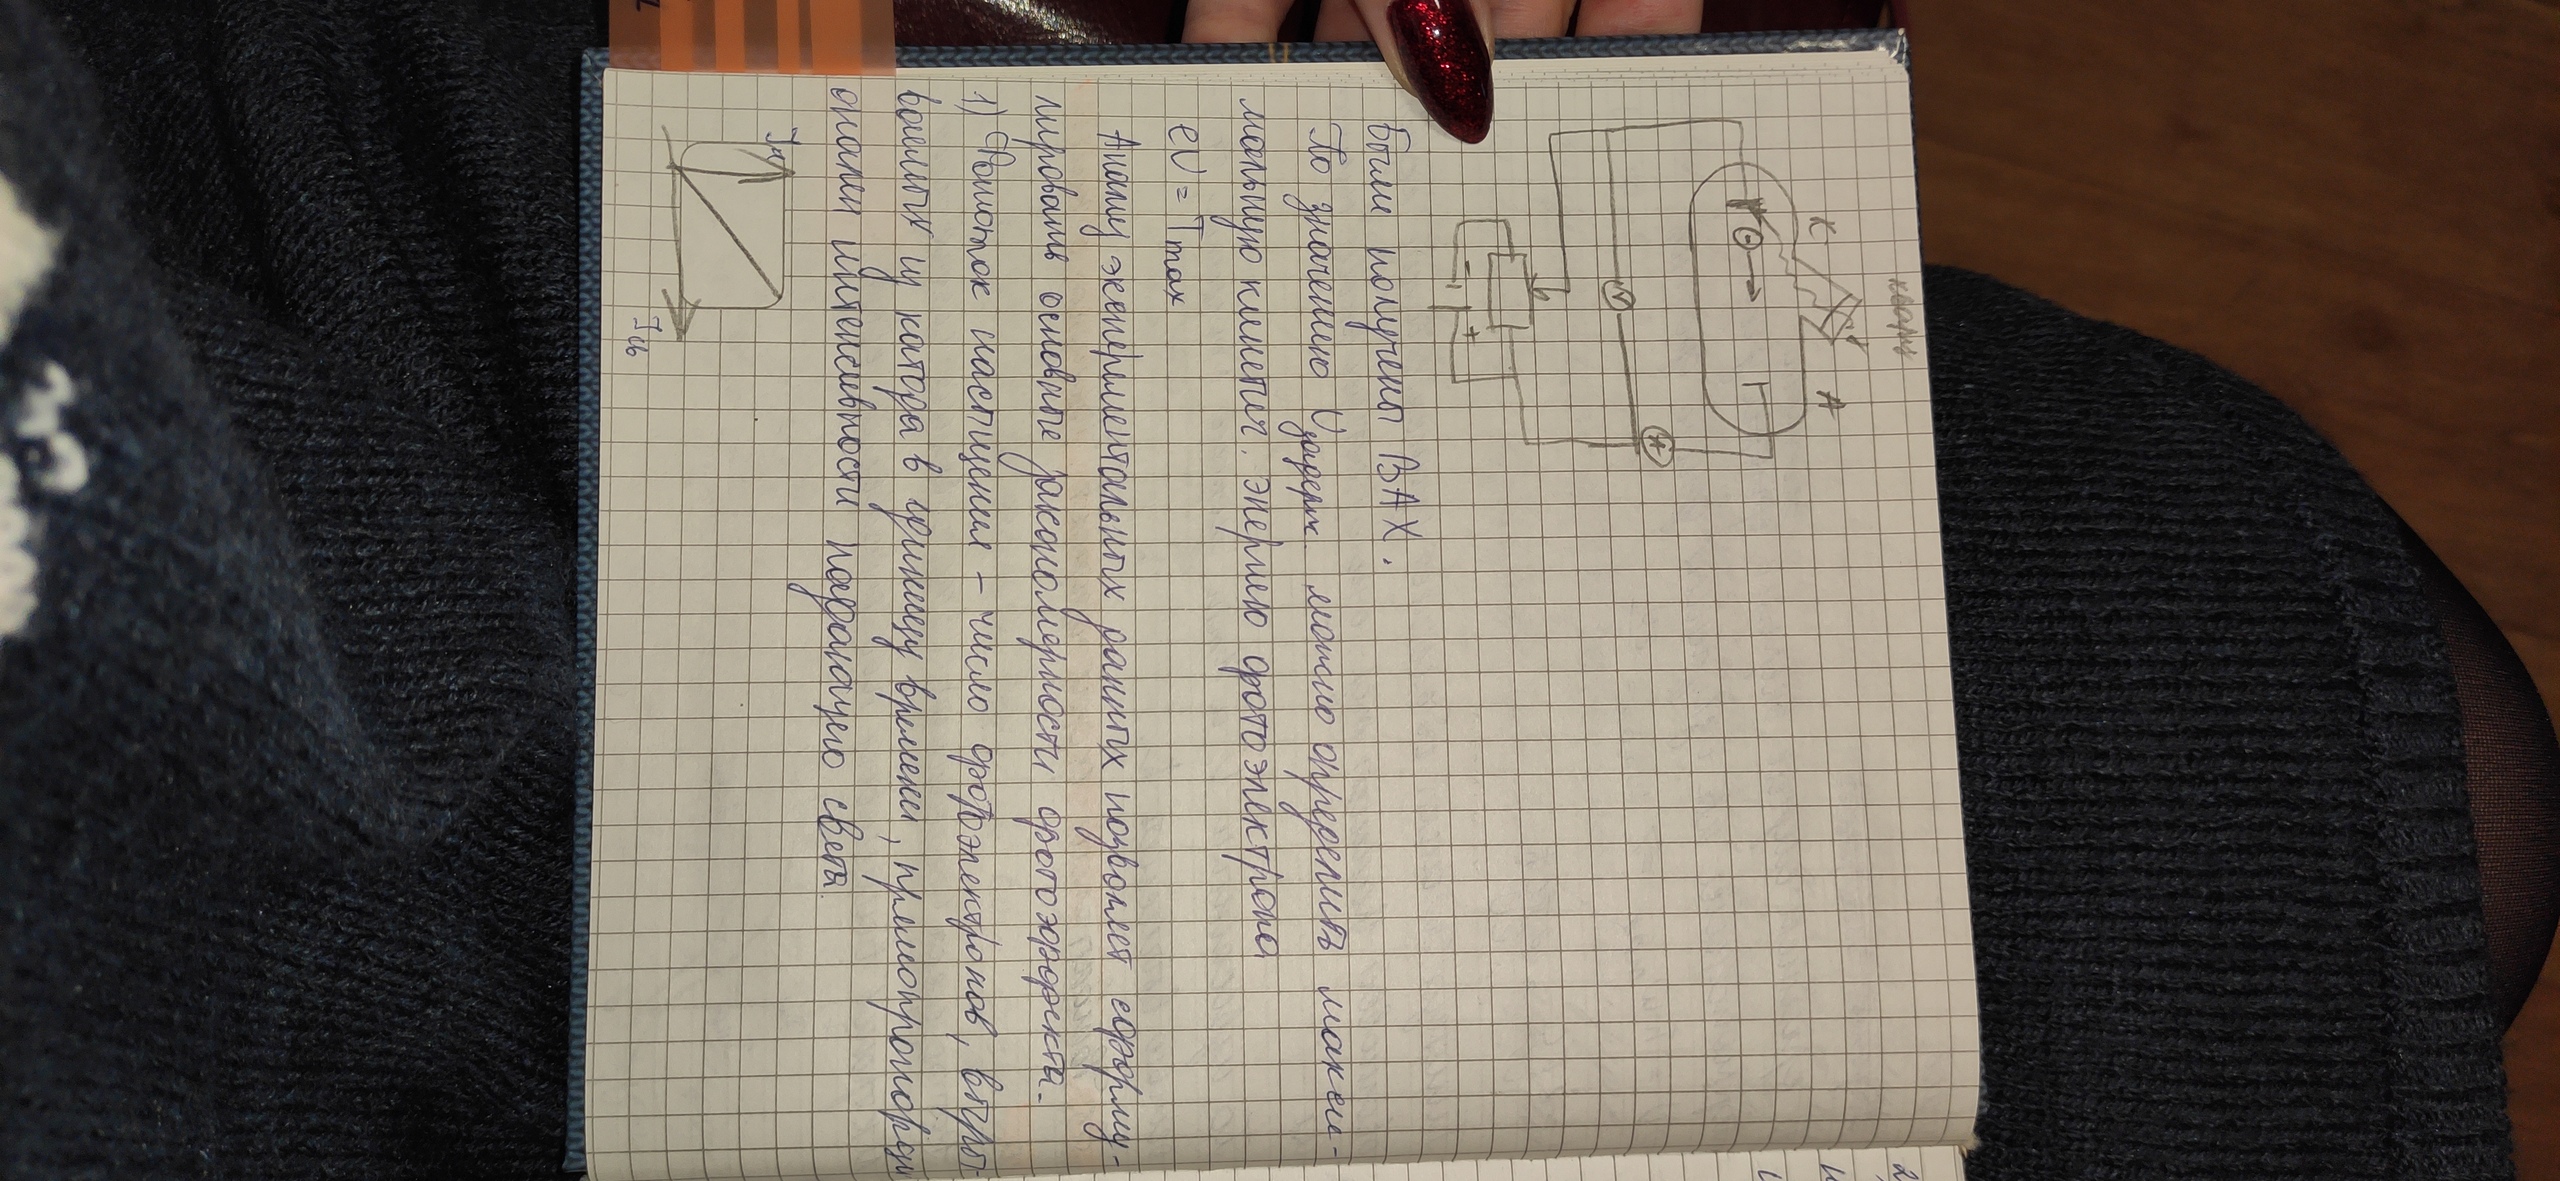 кварц
К А
А
V
- +
Были получены ВАХ.
По значению Uзадерж. можно определить макси-
мальную кинетич. энергию фотоэлектрона
eU = Tmax
Анализ экспериментальных данных позволяет сформу-
лировать основные закономерности фотоэффекта.
1) Фототок насыщения – число фотоэлектронов, выры-
ваемых из катода в единицу времени, прямопропорци
онален интенсивности падающего света.
Iн
Iсв
2